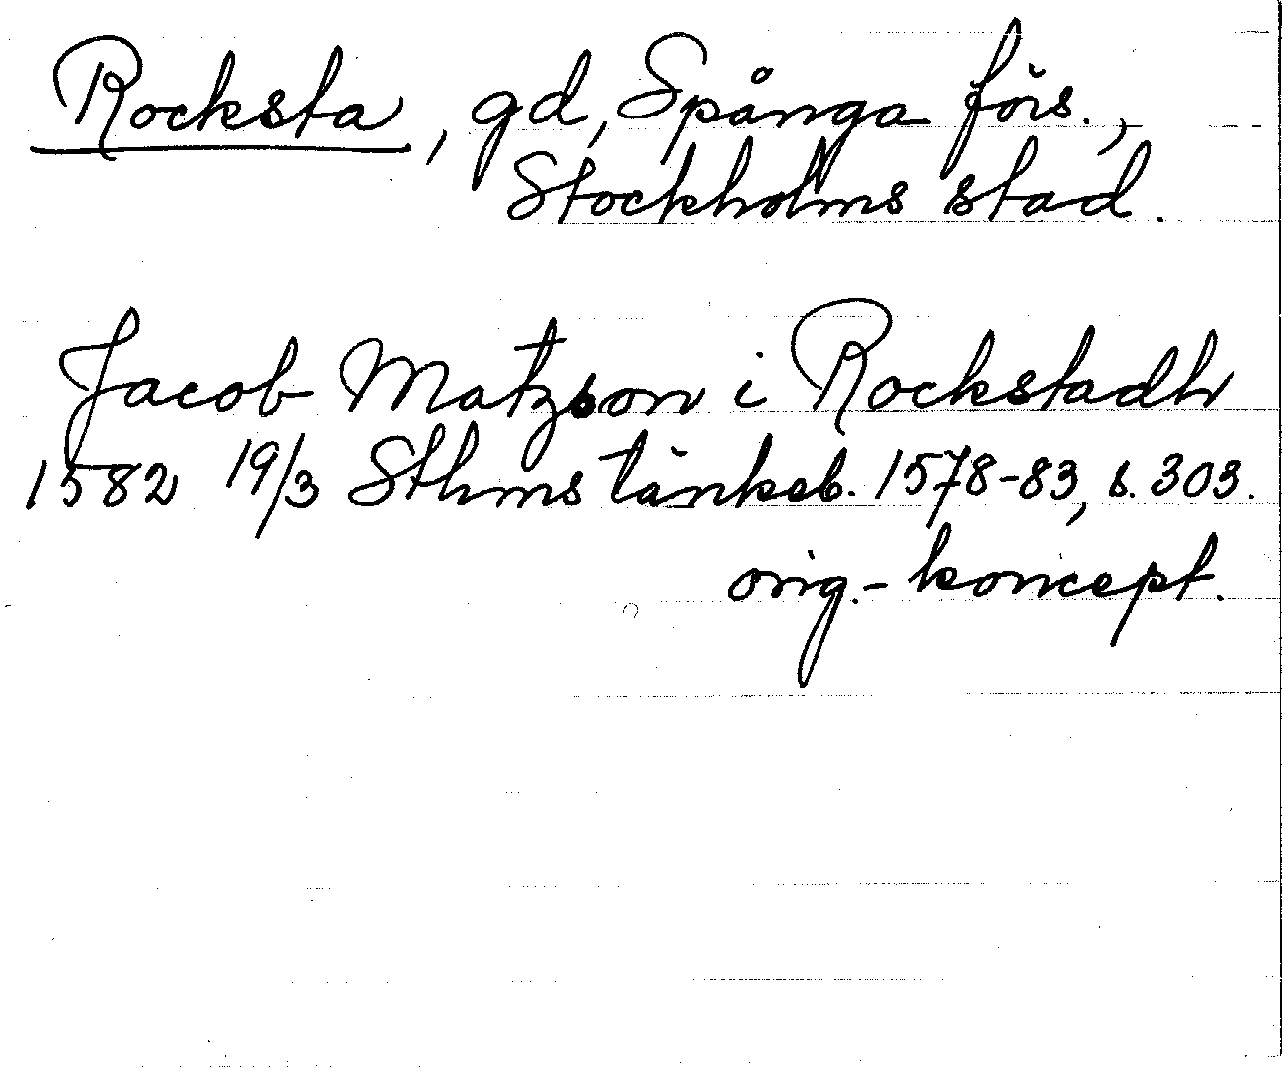 Rocksta, gd, Spånga förs.,
Stockholms stad.
Jacob Matzson i Rockstadh
1582 19/3 Sthms tänkeb. 1578-83, s. 303.
orig.- koncept.